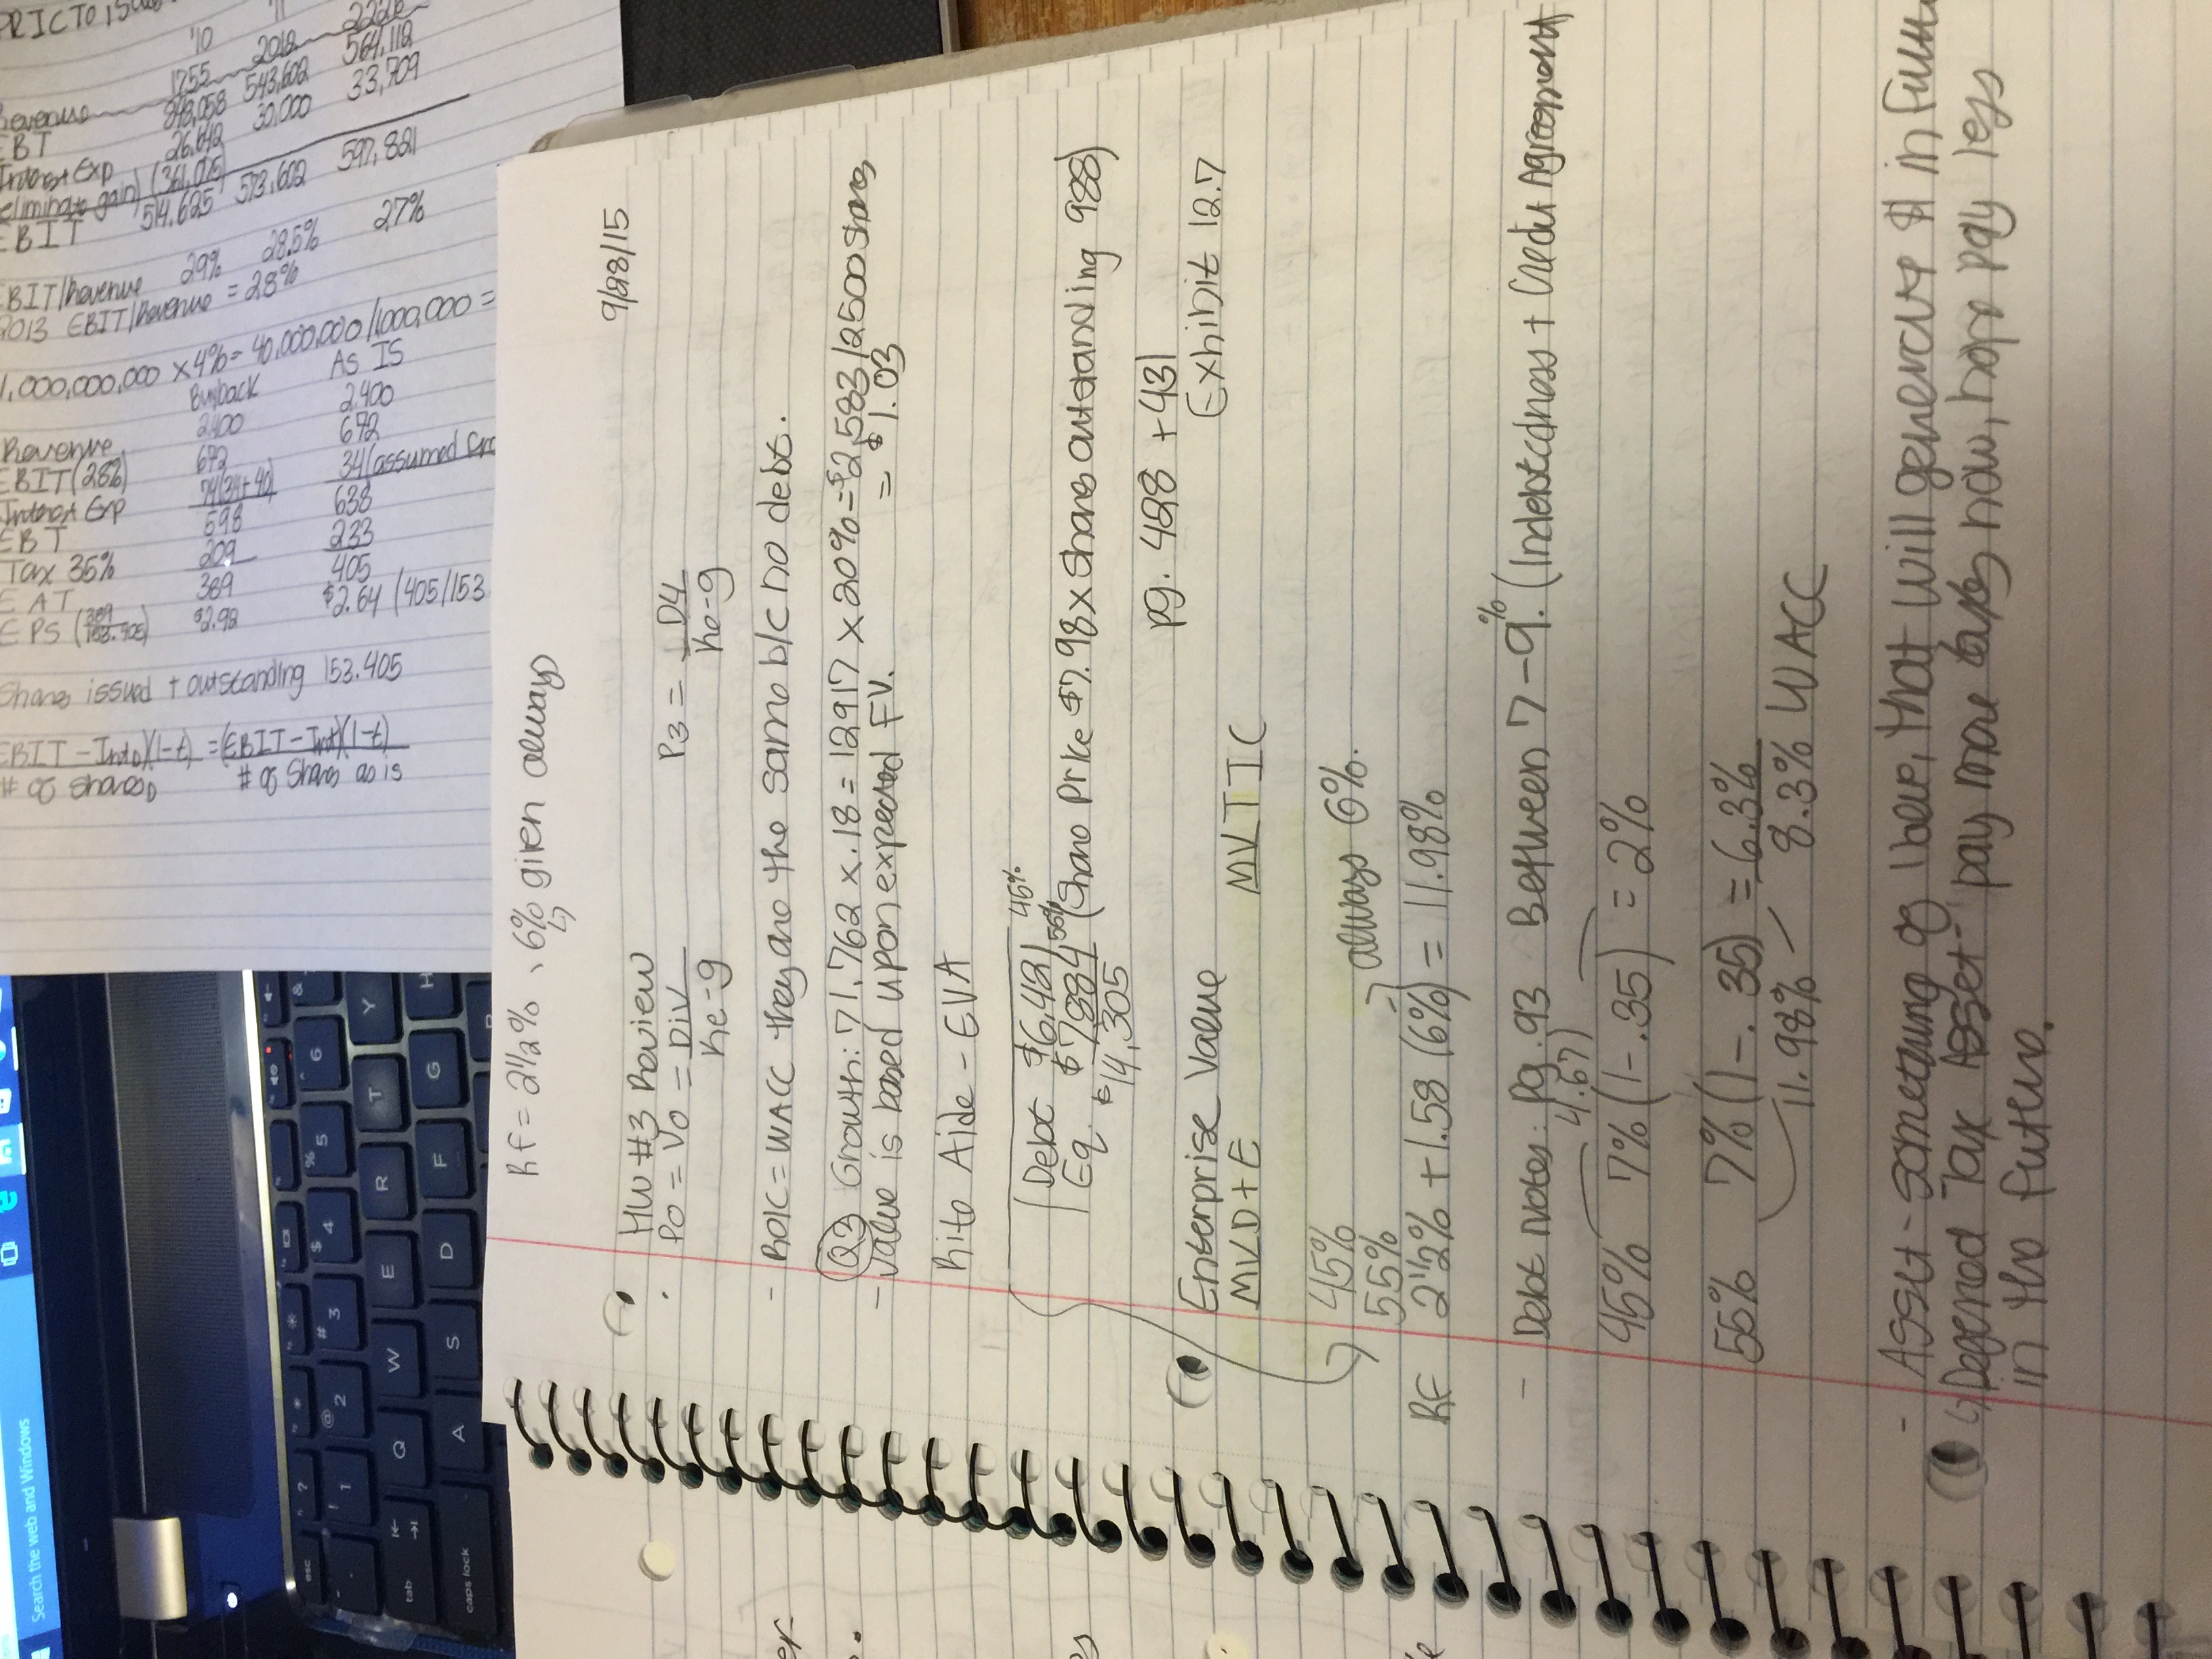 Rf = 2½%, 6% given always
9/28/15
HW #3 Review
P0 = V0 = Div / Ke-g
P3 = D4 / Ke-g
- ROIC = WACC they are the same b/c no debt.
Q3 Growth: 71,762 x .18 = 12917 x 20% = $2,583/2500 shares
= $1.03
- Value is based upon expected FV.
Rite Aide - EVA
Debt $6,421 45%
Eq. $7,884 55% (Share Price $7.98 x Shares outstanding 988)
$14,305
pg. 428 + 431
Enterprise Value
Exhibit 12.7
MVD + E
MVTIC
45%
55%
always 6%.
RF 2½% + 1.58 (6%) = 11.98%
- Debt Notes: pg. 93 Between 7-9%. (Indebtedness + Credit Agreement)
4.67
45% 7% (1-.35) = 2%
55% 7% (1-.35) = 6.3%
11.98%
8.3% WACC
- Asset - Something of value, that will generate $ in
Deferred Tax Asset - pay more taxes now, hope pay less
in the future.
'10
2012
1755
Revenue
EBT 543,602 564,112
Interest Exp 26,642 30,000 33,709
(eliminate gain) (361,075)
EBIT 514,625 573,602 597,821
EBIT/Revenue 29% 28.5% 27%
2013 EBIT/Revenue = 28%
1,000,000,000 x 4% = 40,000,000/1,000,000 =
Buyback As IS
Revenue 2400 2,400
EBIT (28%) 672 672
Interest Exp 74(34+40) 34(assumed
EBT 598 638
Tax 35% 209 233
EAT 389 405
EPS $2.64 (405/153
Shares issued + outstanding 153.405
EBIT - IntD)(1-t) = (EBIT - Int)(1-t)
# of sharesD # of Shares as is
Search the web and Windows
esc
tab
caps lock
1 2 3 4 5 6
Q W E R T Y
A S D F G H